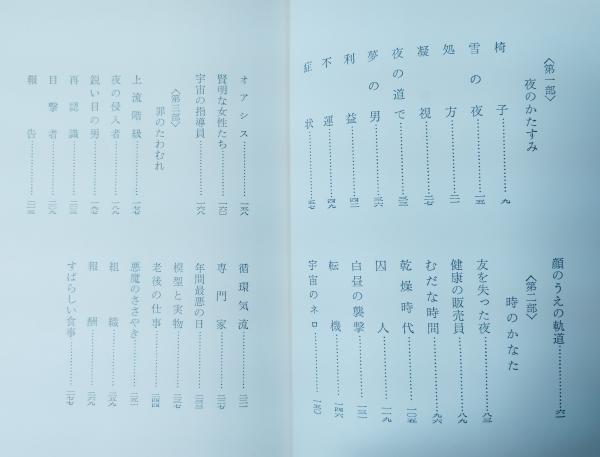 〈第一部〉
夜のかたすみ
椅子………九
雪の夜………一五
処方………二一
凝視………二七
夜の道で………三三
夢の男………三六
利益………四二
不運………四九
症状………五七
顔のうえの軌道………六一
〈第二部〉
時のかなた
友を失った夜………八三
健康の販売員………八九
むだな時間………九六
乾燥時代………一〇五
囚人………一一九
白昼の襲撃………一三一
転機………一四六
宇宙のネロ………一五〇
オアシス………一五八
賢明な女性たち………一六〇
宇宙の指導員………一六八
〈第三部〉
罪のたわむれ
上流階級………一七七
夜の侵入者………一八九
鋭い目の男………一九七
再認識………二〇三
目撃者………二〇九
報告………二一五
循環気流………二二一
専門家………二二七
年間最悪の日………二三三
模型と実物………二三七
老後の仕事………二四四
悪魔のささやき………二五一
組織………二五九
報酬………二六九
すばらしい食事………二七七